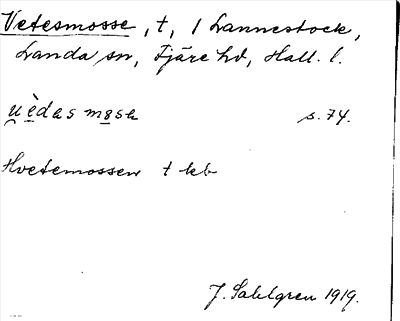 Vetesmosse, t, / Lannestock,
Landa sn, Fjäre hd, Hall. l.
s. 74.
Hvetemossen t kb
J. Sahlgren 1919.